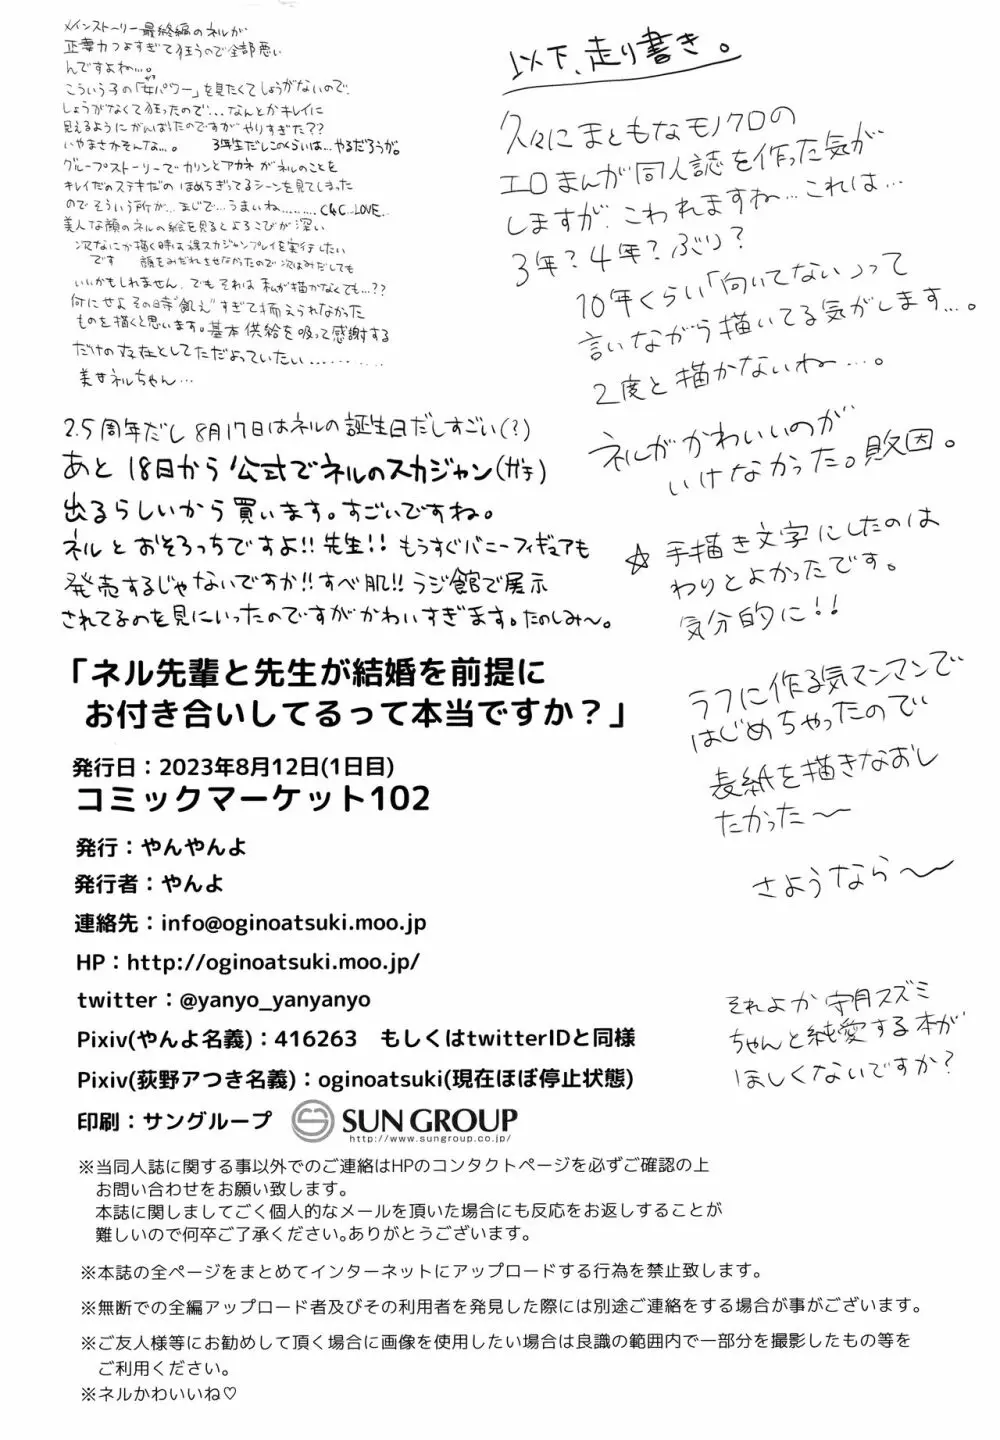 メインストーリー最終編のネルが
正妻力つよすぎて狂うので全部悪い
んですよね…。
こういう子の「女パワー」を見たくてしょうがないので、
しょうがなくて狂ったので…なんとかキレイに
見えるようにがんばったのですがやりすぎた??
いやまさかそんな…。 3年生だしこのくらいは…やるだろうが。
グループストーリーでカリンとアカネがネルのことを
キレイだのステキだのほめちぎってるシーンを見てしまった
のでそういう所が…まじで…うまいね………C&C…LOVE…
美人な顔のネルの絵を見るとよろこびが深い
次なにか描く時は裸スカジャンプレイを実行したい
です 顔をみだれさせなかったので次はみだしても
いいかもしれません、でもそれは私が描かなくても…??
何にせよその時"飢え"すぎて抑えられなかった
ものを描くと思います。基本供給を吸って感謝する
だけの存在としてただよっていたい…………
美女ネルちゃん…
2.5周年だし8月17日はネルの誕生日だしすごい(?)
あと18日から公式でネルのスカジャン(ガチ)
出るらしいから買います。すごいですね。
ネルとおそろっちですよ!!先生!!もうすぐバニーフィギュアも
発売するじゃないですか!!すべ肌!!ラジ館で展示
されてるのを見にいったのですがかわいすぎます。たのしみ〜。
「ネル先輩と先生が結婚を前提に
お付き合いしてるって本当ですか？」
発行日：2023年8月12日(1日目)
コミックマーケット102
発行：やんやんよ
発行者：やんよ
連絡先：info@oginoatsuki.moo.jp
HP：http://oginoatsuki.moo.jp/
twitter：@yanyo_yanyanyo
Pixiv(やんよ名義)：416263　もしくはtwitterIDと同様
Pixiv(荻野アつき名義)：oginoatsuki(現在ほぼ停止状態)
印刷：サングループ SUN GROUP
http://www.sungroup.co.jp/
※当同人誌に関する事以外でのご連絡はHPのコンタクトページを必ずご確認の上
お問い合わせをお願い致します。
本誌に関しましてごく個人的なメールを頂いた場合にも反応をお返しすることが
難しいので何卒ご了承ください。ありがとうございます。
※本誌の全ページをまとめてインターネットにアップロードする行為を禁止致します。
※無断での全編アップロード者及びその利用者を発見した際には別途ご連絡をする場合が事がございます。
※ご友人様等にお勧めして頂く場合に画像を使用したい場合は良識の範囲内で一部分を撮影したもの等を
ご利用ください。
※ネルかわいいね♡
以下、走り書き。
久々にまともなモノクロの
エロまんが同人誌を作った気が
しますが、こわれますね…これは…
3年?4年?ぶり?
10年くらい「向いてない」って
言いながら描いてる気がします…。
2度と描かないね…。
ネルがかわいいのが
いけなかった。敗因。
☆手描き文字にしたのは
わりとよかったです。
気分的に!!
ラフに作る気マンマンで
はじめちゃったので
表紙を描きなおし
たかった〜
さようなら〜
それよか守月スズミ
ちゃんと純愛する本が
ほしくないですか?